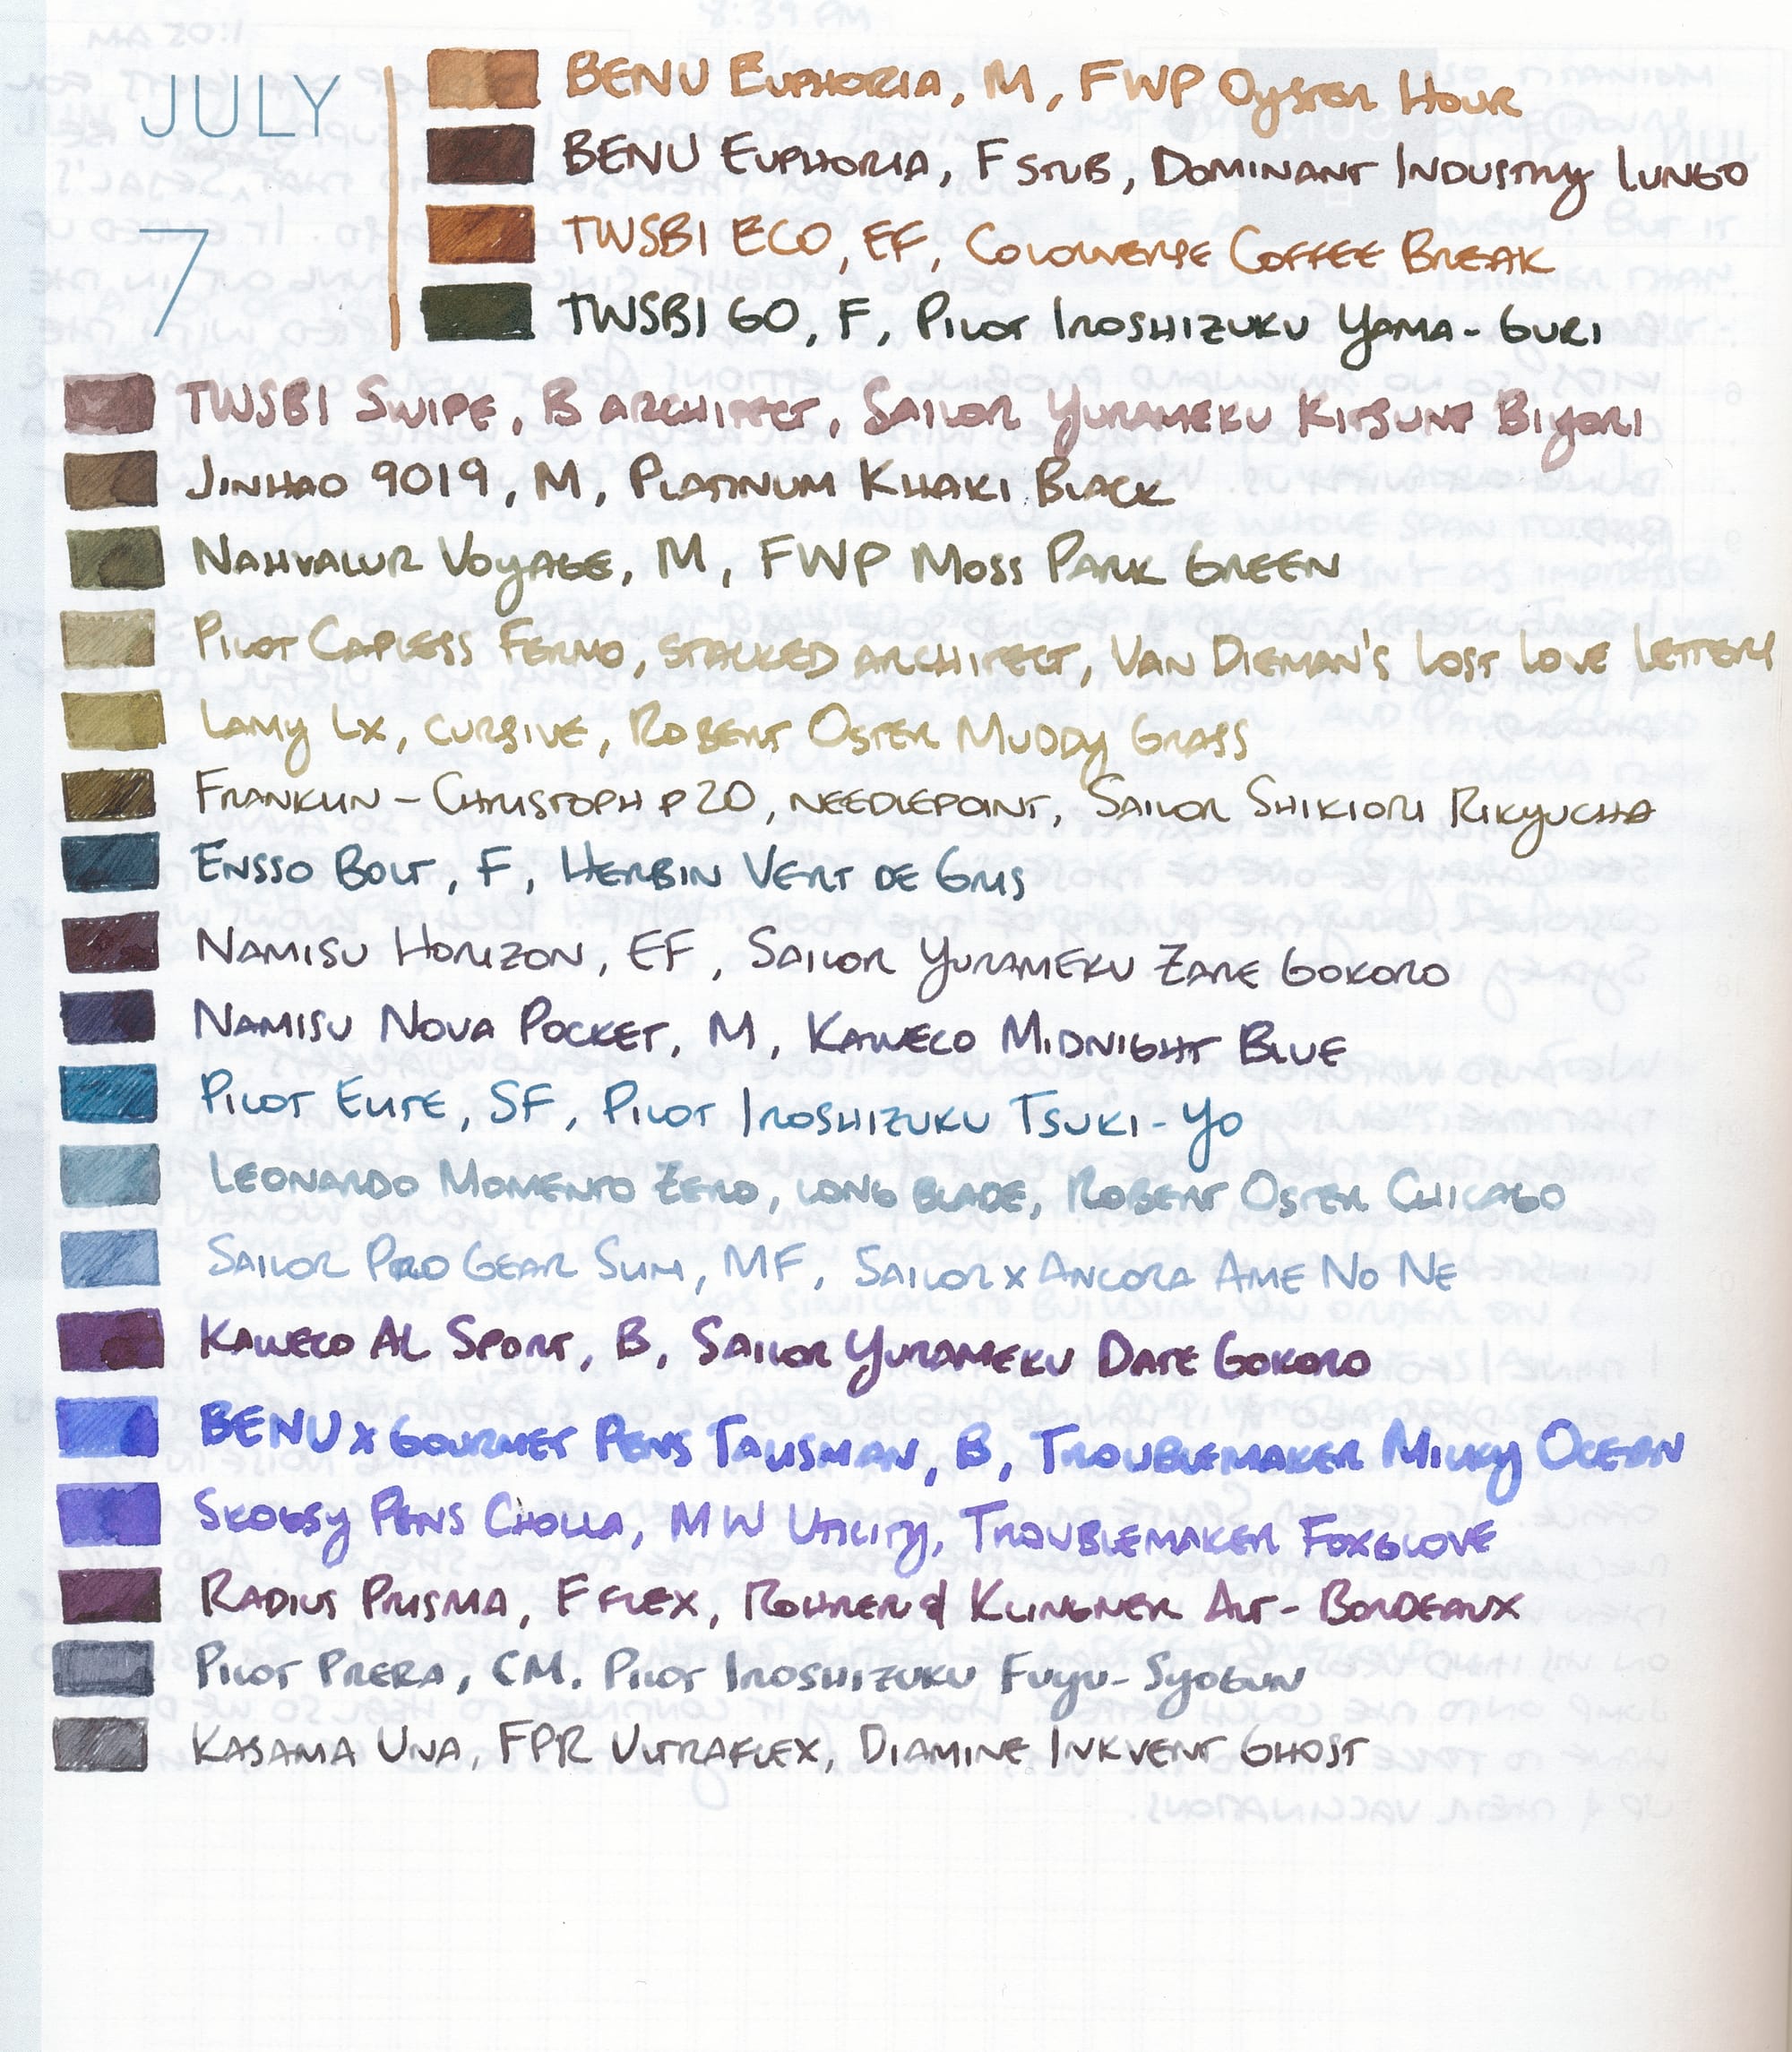 JULY
7
BENU EUPHORIA, M, FWP OYSTER HOUR
BENU EUPHORIA, F STUB, DOMINANT INDUSTRY LUNGO
TWSBI ECO, EF, COLORVERSE COFFEE BREAK
TWSBI GO, F, PILOT IROSHIZUKU YAMA-GURI
TWSBI SWIPE, B ARCHITECT, SAILOR YURAMEKU KITSUNE BIYORI
JINHAO 9019, M, PLATINUM KHAKI BLACK
NAHVALUR VOYAGE, M, FWP MOSS PARK GREEN
PILOT CAPLESS FERMO, STACKED ARCHITECT, VAN DIEMAN'S LOST LOVE LETTERS
LAMY LX, CURSIVE, ROBERT OSTER MUDDY GRASS
FRANKLIN-CHRISTOPH P20, NEEDLEPOINT, SAILOR SHIKIORI RIKYUCHA
ENSSO BOLT, F, HERBIN VERT DE GRIS
NAMISU HORIZON, EF, SAILOR YURAMEKU ZARE GOKORO
NAMISU NOVA POCKET, M, KAWECO MIDNIGHT BLUE
PILOT ELITE, SF, PILOT IROSHIZUKU TSUKI-YO
LEONARDO MOMENTO ZERO, LONG BLADE, ROBERT OSTER CHICAGO
SAILOR PRO GEAR SLIM, MF, SAILOR X ANCORA AME NO NE
KAWECO AL SPORT, B, SAILOR YURAMEKU DATE GOKORO
BENU X GOURMET PENS TALISMAN, B, TROUBLEMAKER MILKY OCEAN
SKOGSY PENS CHOLLA, MW UTILITY, TROUBLEMAKER FOXGLOVE
RADIUS PRISMA, F FLEX, ROHRER & KLINGNER ALT-BORDEAUX
PILOT PRERA, CM. PILOT IROSHIZUKU FUYU-SYOGUN
KASAMA UNA, FPR ULTRAFLEX, DIAMINE INKVENT GHOST